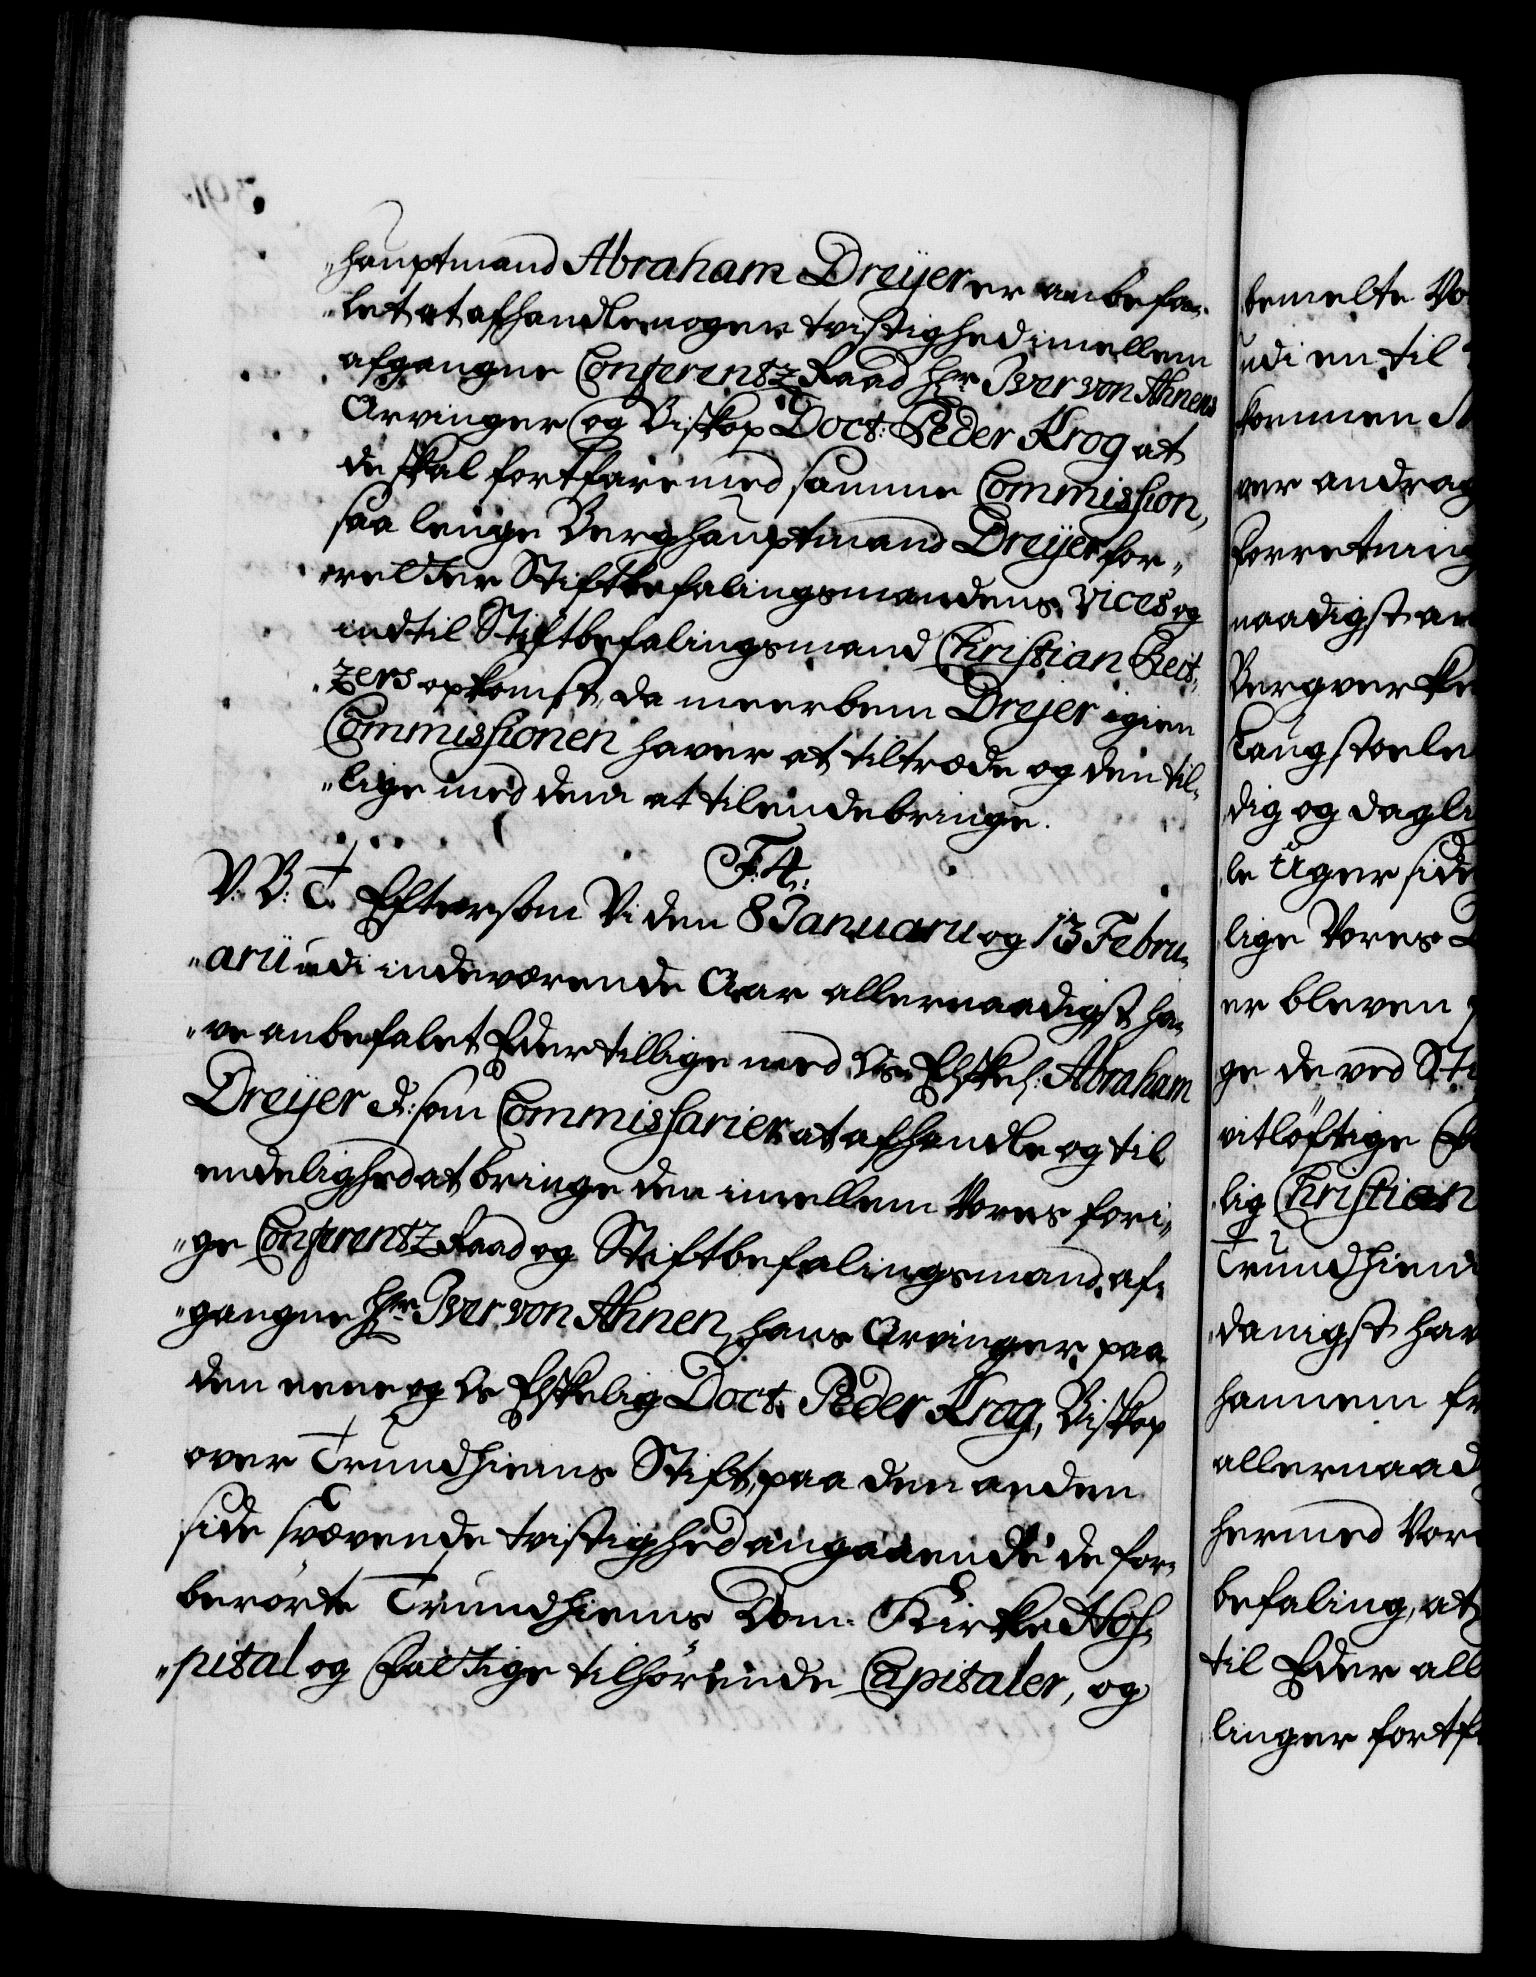 „hauptmand Abraham Dreÿer er anbefa„
„let at afhandle noger tvistighed imellem
afgangne Conferentz Raad Hr Iver von Ahnens
Arvinger og Biskop Doct: Peder Krog at
de skal fortfare med samme Commission,
saa lenge Berghauptmand Dreÿer for„
„retter Stiftbefalingsmandens vices og
indtil Stiftbefalingsmand Christian Reit„
„zers opkomst, da meerbem Dreÿer igien
Commissionen haver at tiltrœde og den til„
„lige med dem at tilendebringe.
F: 4.
V: B: T. Eftersom Vi den 8 Januarii og 13 Febru„
„arii udi indeværende Aar allernaadigst ha„
„ve anbefalet Eder tillige med Os Elskel: Abraham
Dreÿer d: som Commissarier at afhandle og til
endelighed at bringe den imellem Vores fori„
„ge Conferentz Raad og Stiftbefalingsmand, af„
„gangne Hr Iver von Ahnen, hans Arvinger, paa
den eene og Os Elskelig Doct. Peder Krog, Biskop
over Trundhiems Stift, paa den anden
side svœvende tvistighed angaaende de for„
berørte Trundhiems Dom-Kirke Hos„
„pital og Fattige tilhørende Capitaler, og
bemelte Vo
udi en til
kommen
ver andrag
forretning
naadigst an
Bergverke
Laugstoele
dig og dagli
le Uger side
lige Vores
er bleven
ge de ved Sti
vitløftige
lig Christian
Trundhiem
danigst hav
hannem fr
allernaad
hermed Vor
befaling, at
til Eder all
linger fortf